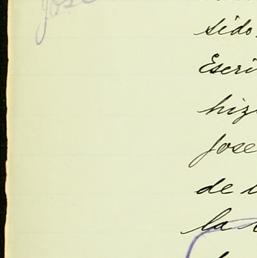 Jose
sido
Escri
hiz
Jose
de
la